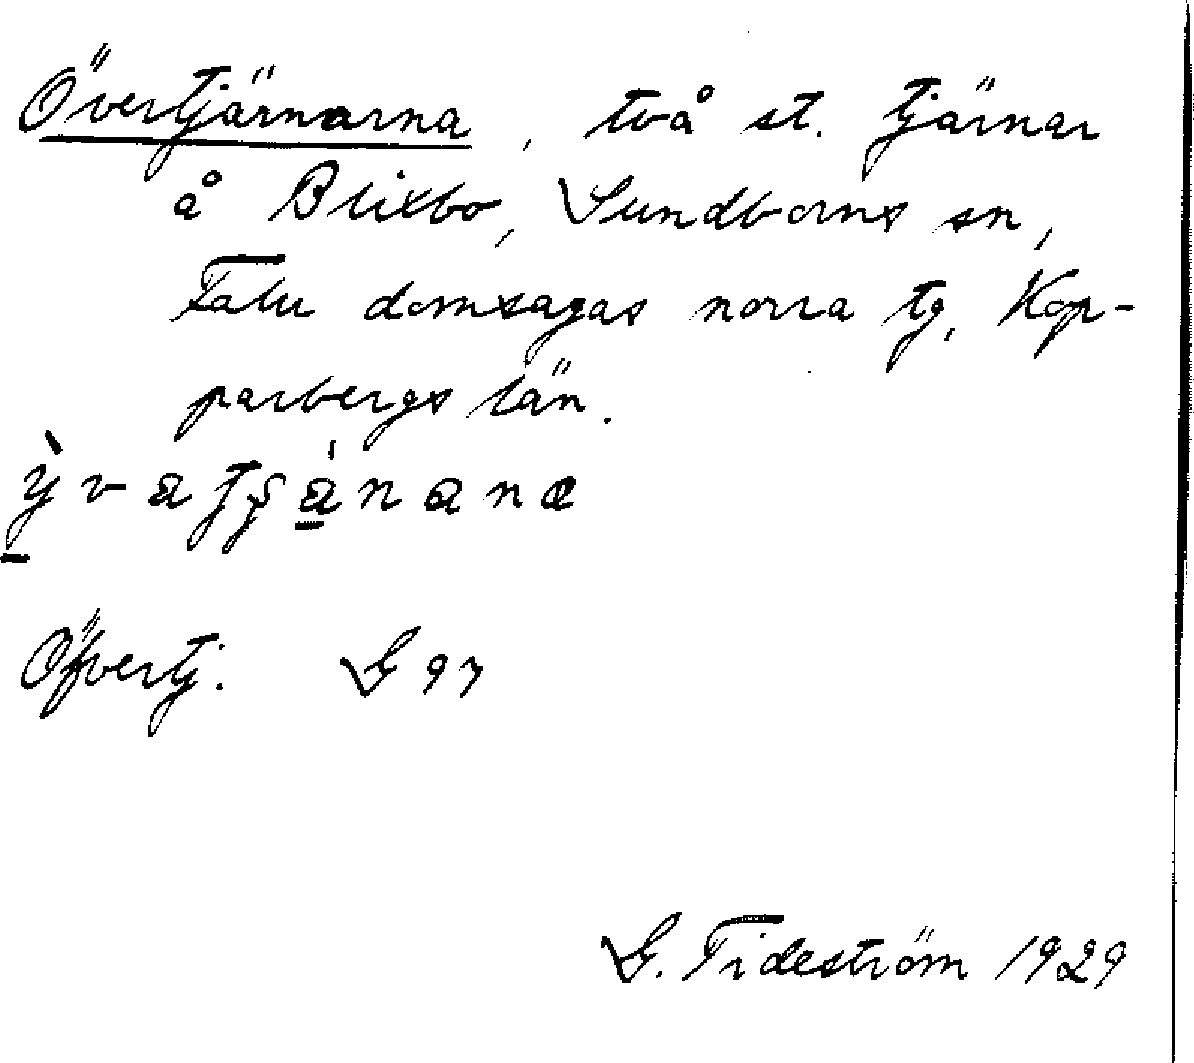 Övertjärnarna, två st. tjärnar
å Blixbo, Sundborns sn,
Falu domsagas norra tg, Kop-
parbergs län.
Öfvertj. G 97
G. Tideström 1929